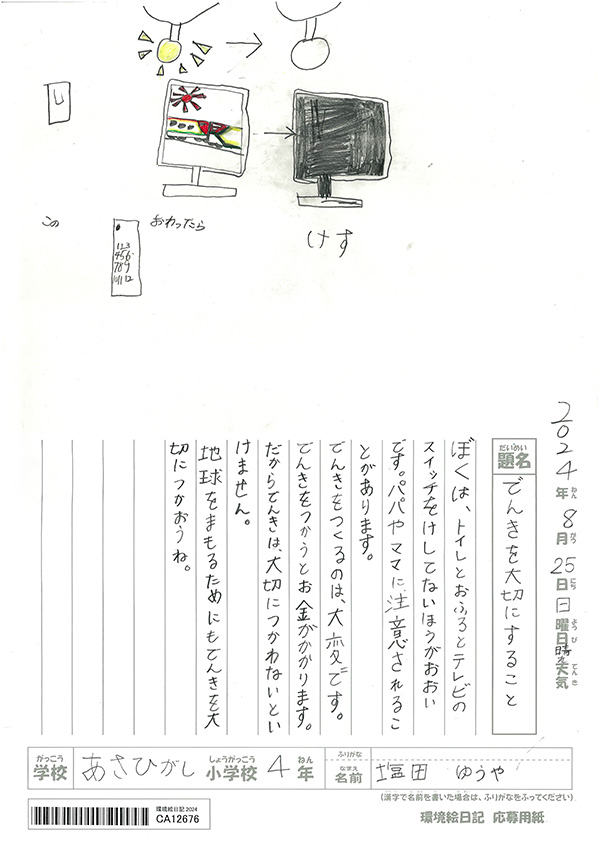 この
123
456
789
101112
おわったら
けす
2024年ねん8月がつ25日にち日曜日ようび晴れ天気てんき
だいめい
題名
でんきを大切にすること
ぼくは、トイレとおふろとテレビの
スイッチをけしてないほうがおおい
です。パパやママに注意されるこ
とがあります。
でんきをつくるのは、大変です。
でんきをつかうとお金がかかります。
だからでんきは、大切につかわないとい
けません。
地球をまもるためにもでんきを大
切につかおうね。
がっこう
学校
あさひがし
しょうがっこう
小学校
4
ねん
年
ふりがな
なまえ
名前
塩田 ゆうや
(漢字で名前を書いた場合は、ふりがなをふってください)
環境絵日記2024
CA12676
環境絵日記 応募用紙